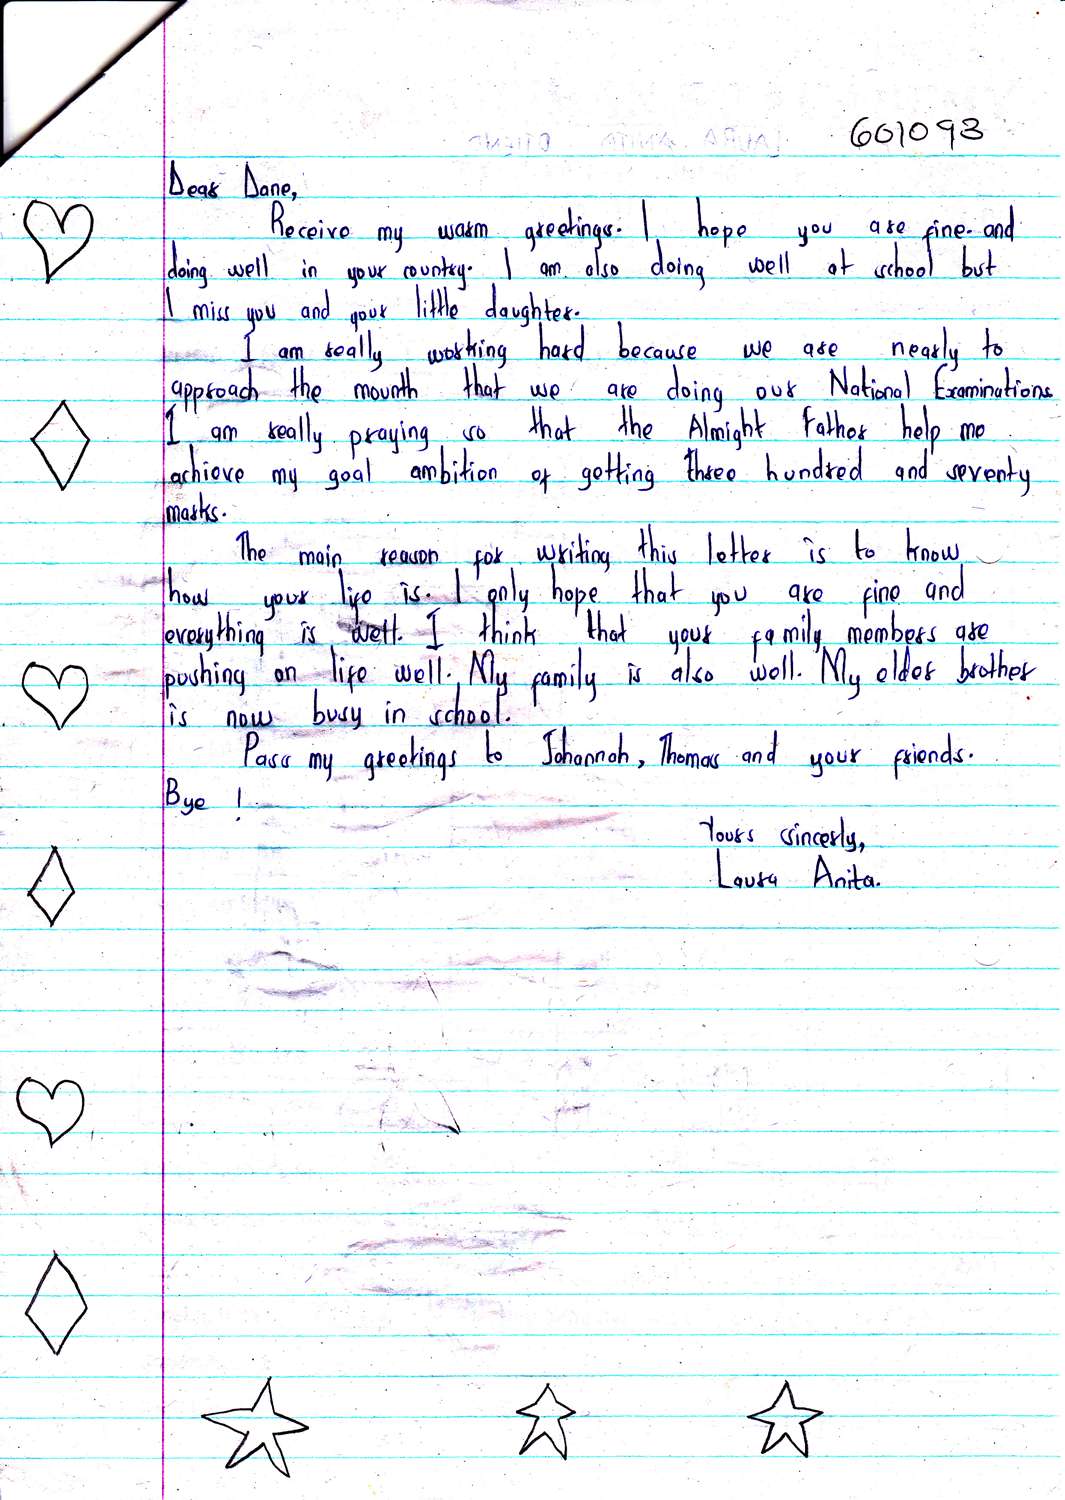 601093
Dear Dane,
Receive my warm greetings. I hope you are fine. and
doing well in your country. I am also doing well at school but
I miss you and your little daughter.
I am really working hard because we are nearly to
approach the mounth that we are doing our National Examinations
I am really praying so that the Almight Father help me
achieve my goal ambition of getting three hundred and seventy
marks.
The main reason for writing this letter is to know
how your life is. I only hope that you are fine and
everything is well. I think that your family members are
pushing on life well. My family is also well. My elder brother
is now busy in school.
Pass my greetings to Johannah, Thomas and your friends.
Bye !
Yours sincerly,
Laura Anita.